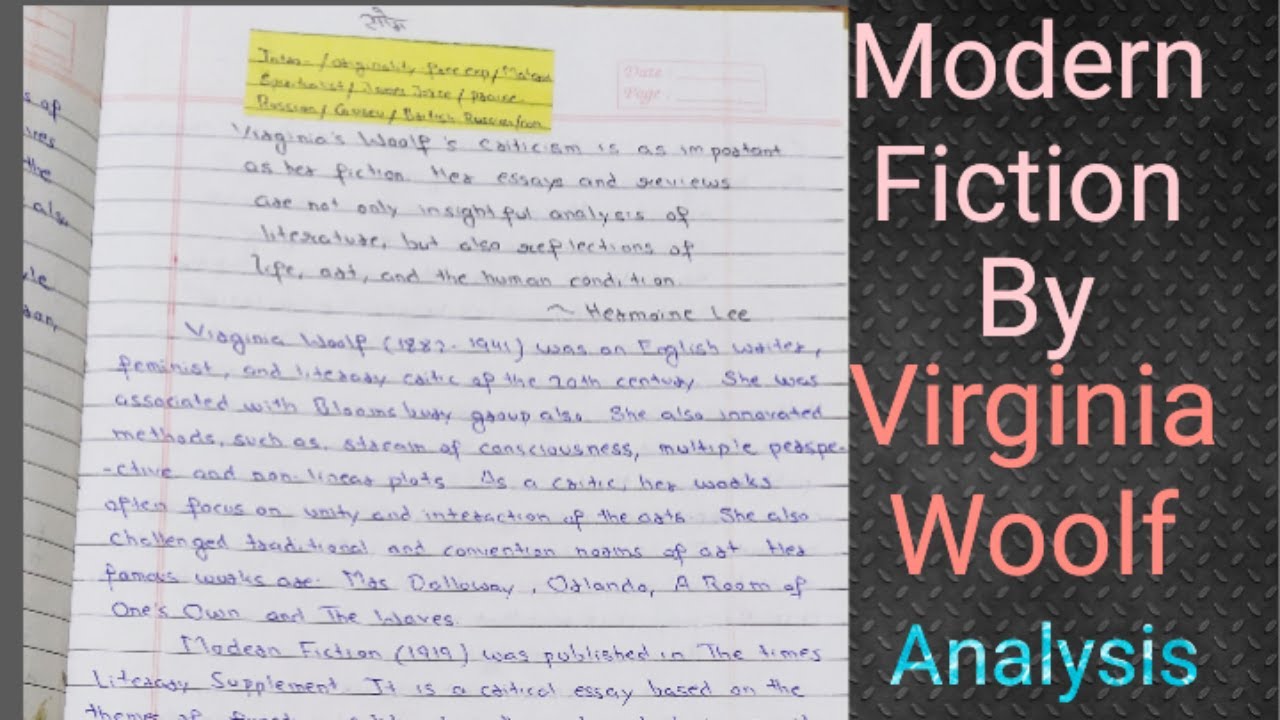 Intro- / originality
/ James Joice / praise
Russian / / British Russian/con
Date
Page
Virginia's Woolf's criticism is as important
as her fiction. Her essays and reviews
are not only insightful analysis of
literature, but also reflections of
life, art, and the human condition.
~ Hermoine Lee
Virginia Woolf (1882-1941) was an English writer,
feminist, and literary critic of the 20th century. She was
associated with Bloomsbury group also. She also innovated
methods, such as, stream of consciousness, multiple perspe-
-ctive and non-linear plots. As a critic, her works
often focus on unity and interaction of the arts. She also
challenged traditional and convention norms of art. Her
famous works are- Mrs Dalloway, Orlando, A Room of
One's Own and The Waves.
Modern Fiction (1919) was published in The times
Literary Supplement. It is a critical essay based on the
themes of
of
the
also
Modern
Fiction
By
Virginia
Woolf
Analysis